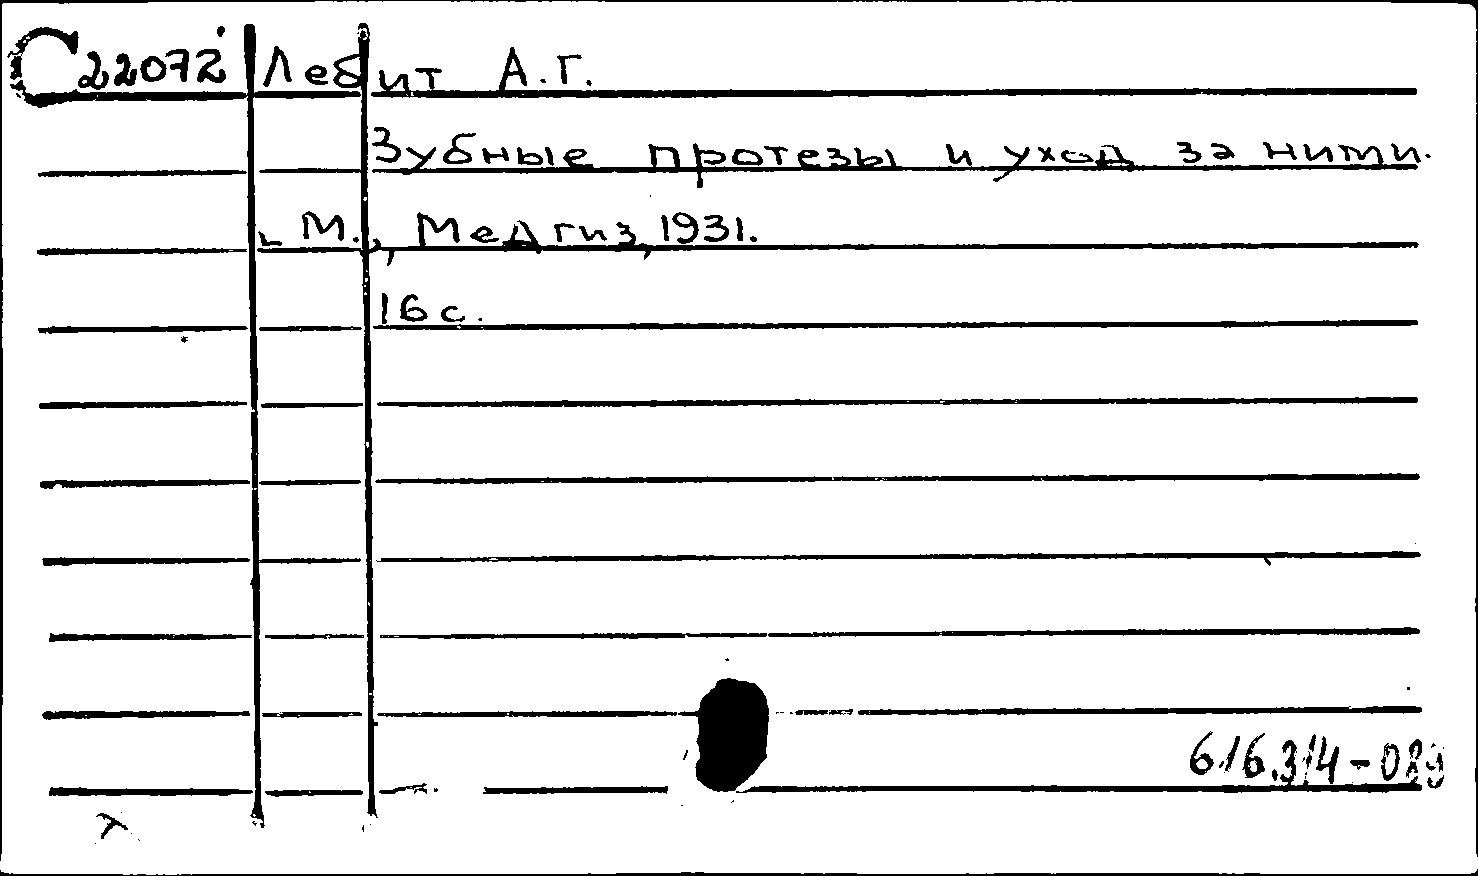 С22072 Левит А.Г.
Зубные протезы и уход за ними.
М., Медгиз, 1931.
16 с.
616.314-089